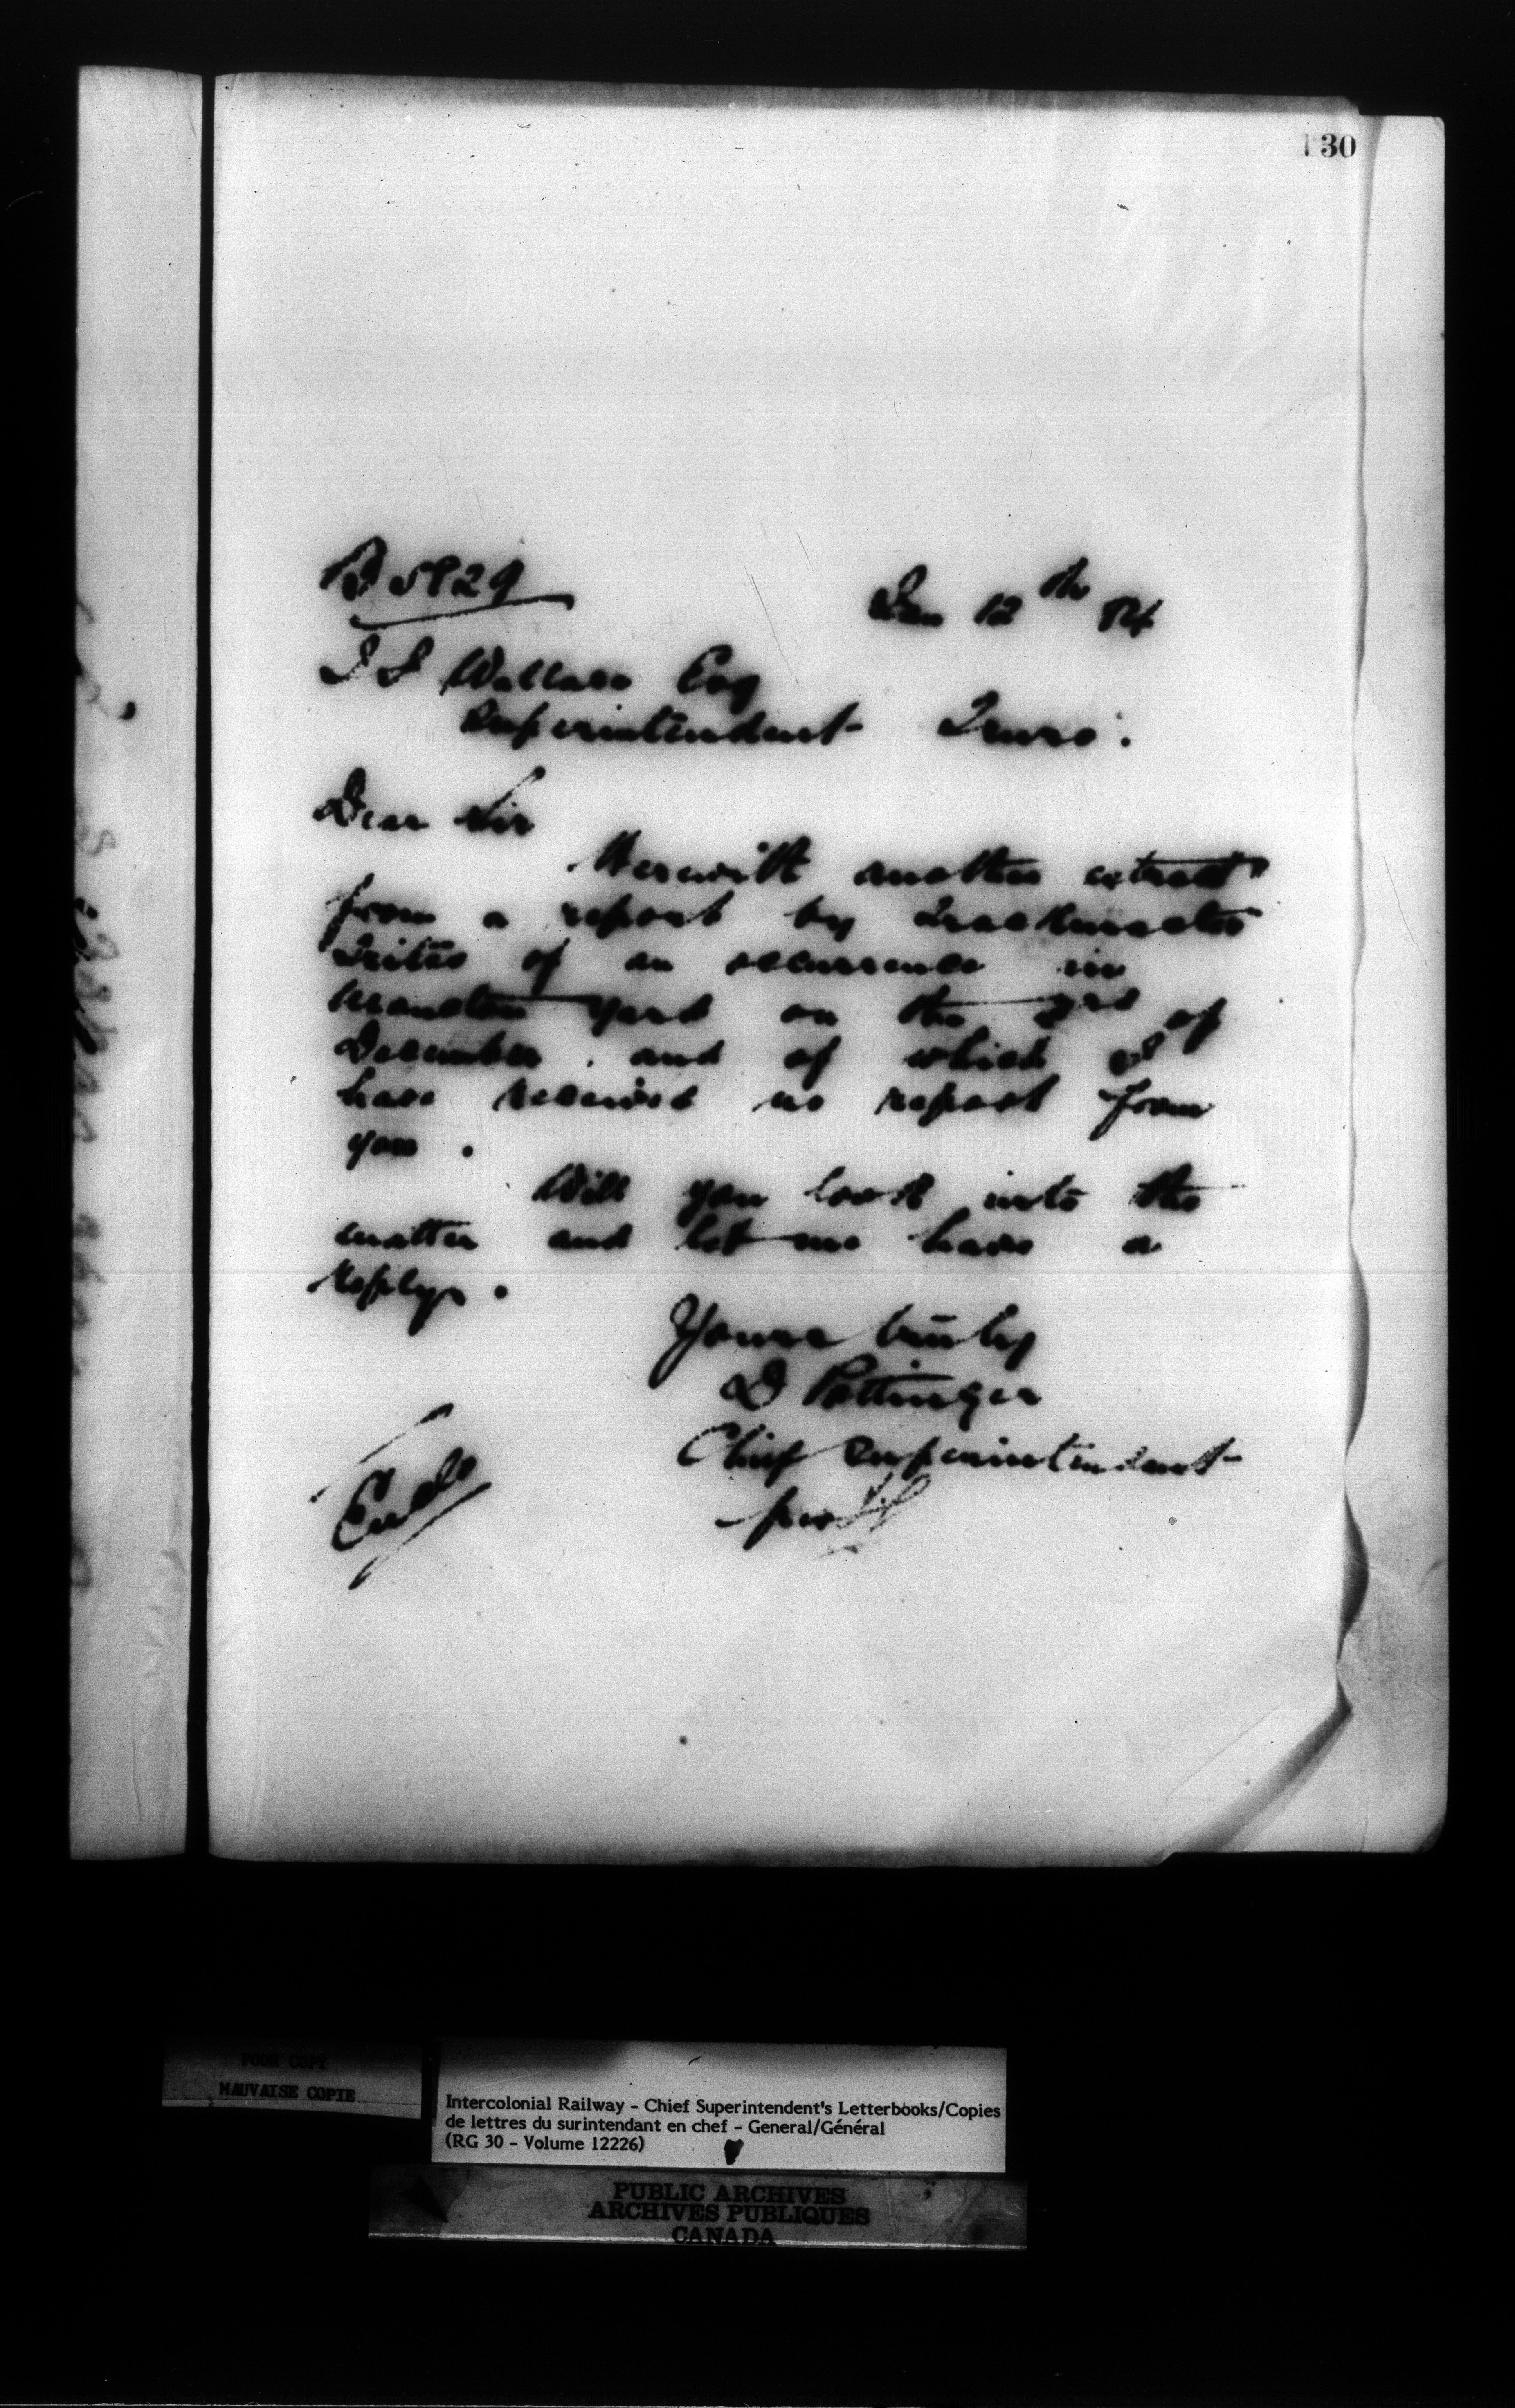 130
B 5829
Jan 12th 84
J S Wallace Esq
Superintendent Truro.
Dear Sir
Herewith another extract
from a report by Trackmaster
Trites of an occurrence in
Moncton yard on the 3rd of
December. and of which I
have received no report from
you.
Will you look into the
matter and let me have a
reply.
Yours truly
D Pottinger
Chief Superintendent
per
Encl
POOR COPY
MAUVAISE COPIE
Intercolonial Railway - Chief Superintendent's Letterbooks/Copies
de lettres du surintendant en chef - General/Général
(RG 30 - Volume 12226)
PUBLIC ARCHIVES
ARCHIVES PUBLIQUES
CANADA